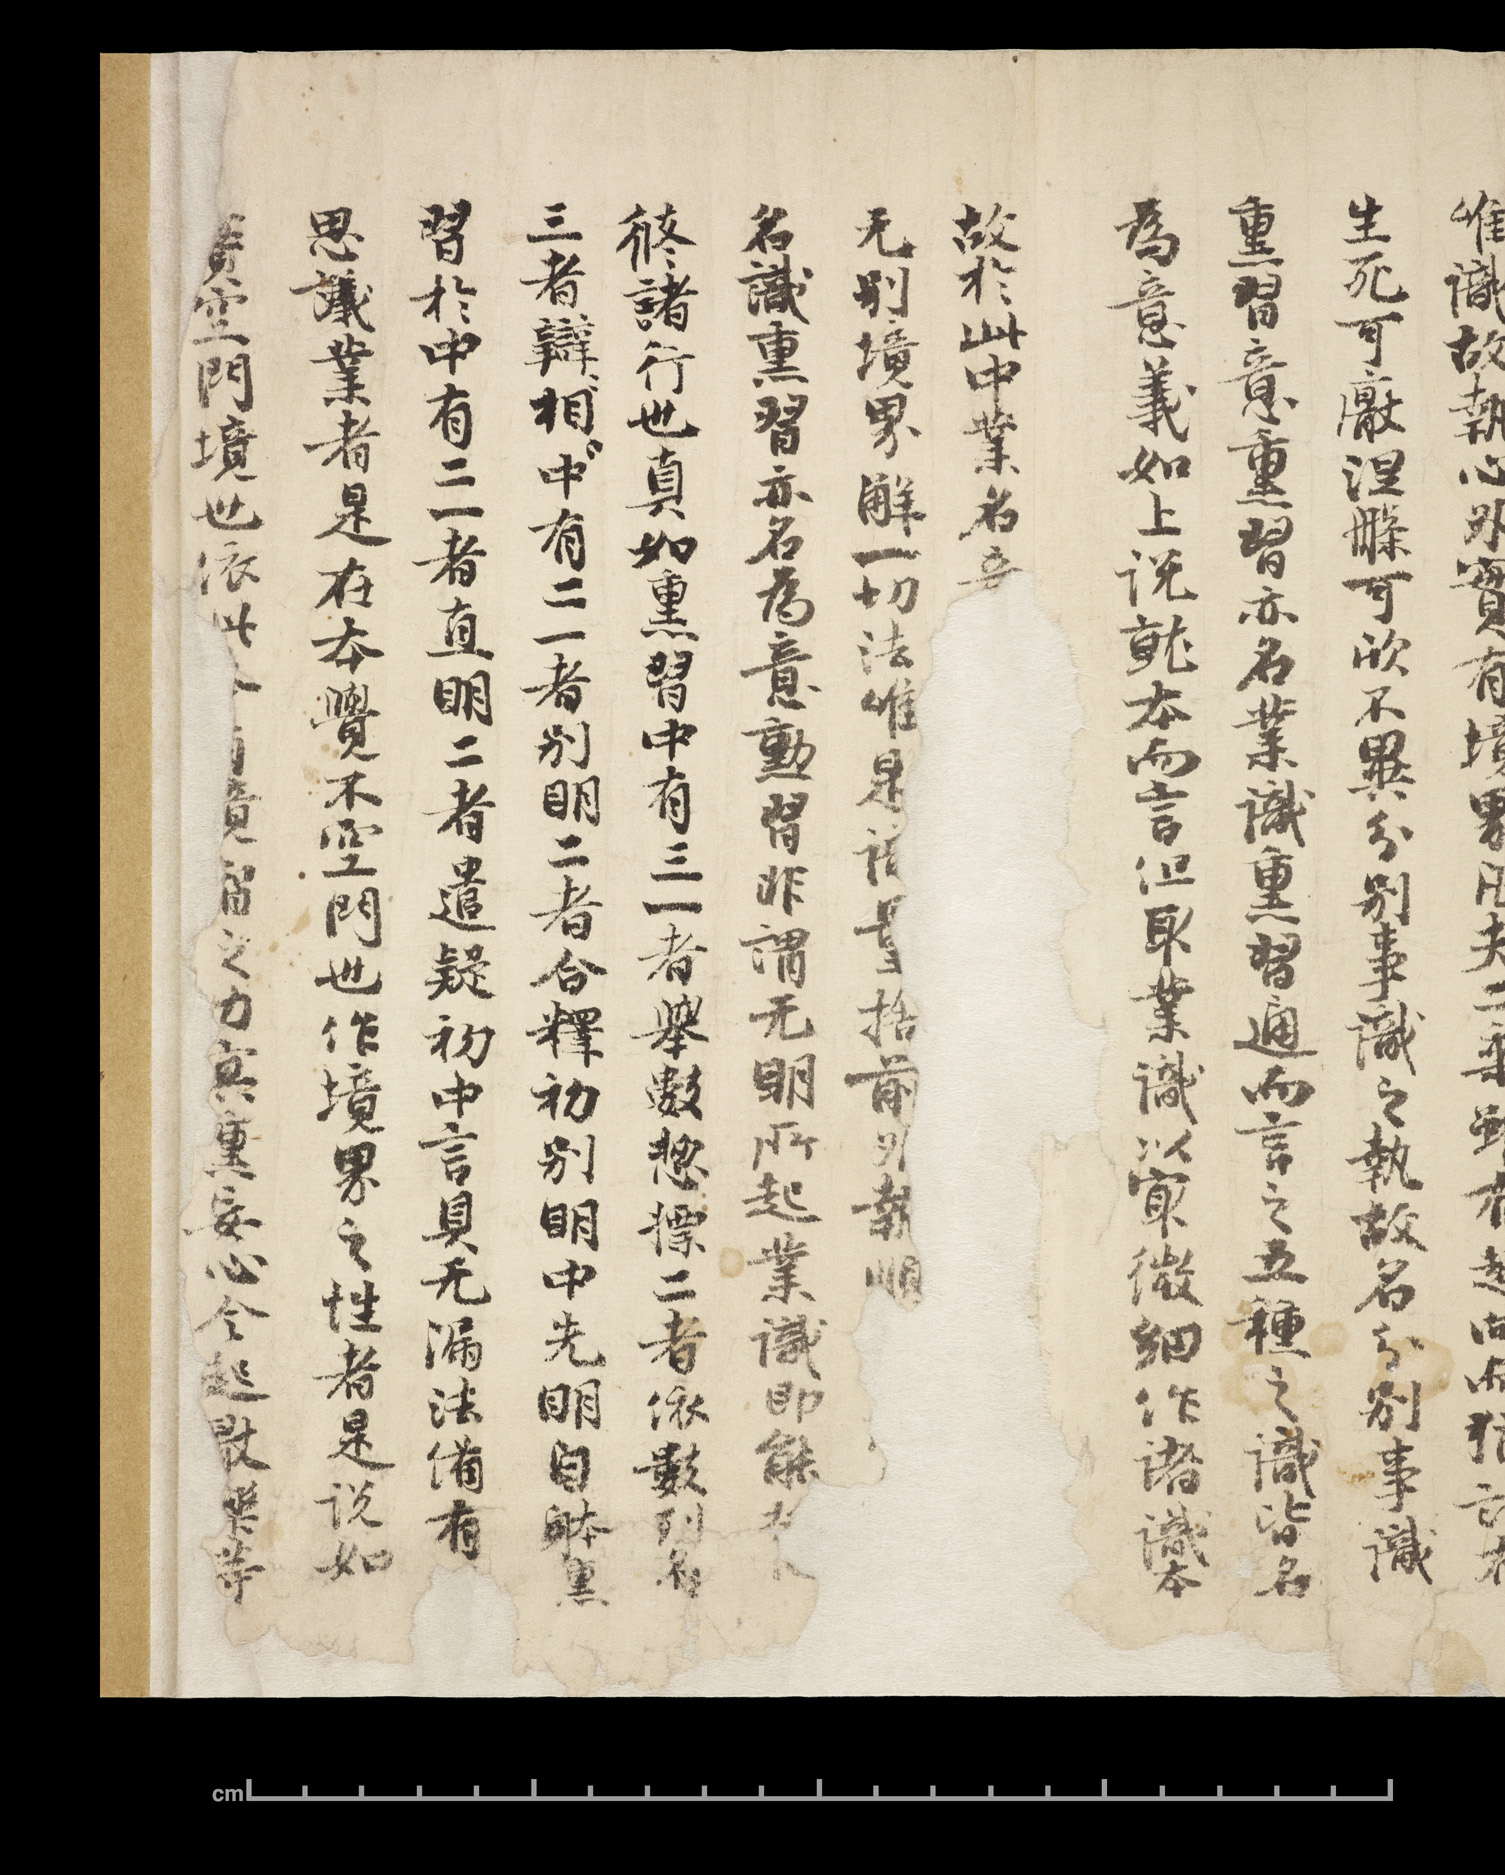 唯識故執心外實有境界凡夫二乘雖有趣向而猶言有
生死可厭涅槃可欣不異分別事識之執故名分別事識
熏習意熏習亦名業識熏習通而言之五種之識皆名
為意義如上说就本而言但取業識以宷微細作諸識本
故於此中業名
无別境界解一切法唯是識量括前別執順
名識熏習亦名為意勳習非謂无明所起業識即能
修諸行也真如熏習中有三一者舉數惣摽二者依數列名
三者辯相中有二一者別明二者合釋初別明中先明自體熏
習於中有二一者直明二者遣疑初中言具无漏法備有
思議業者是在本覺不空門也作境界之性者是说如
實空門境也依此 境習之力冥熏妄心令起猒樂等